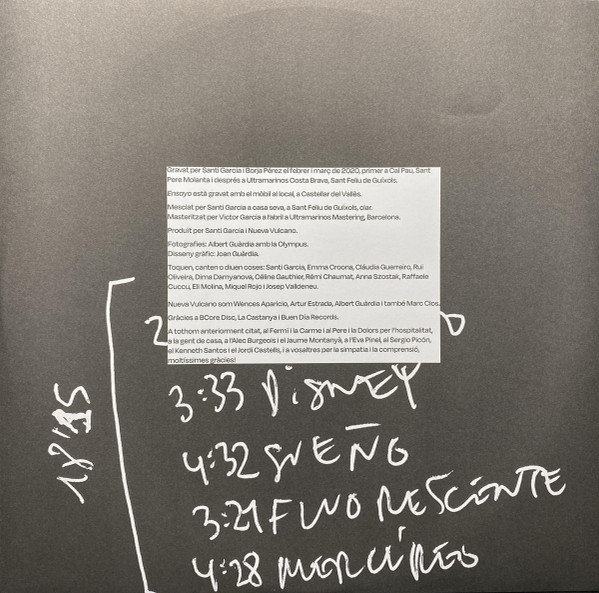 Gravat per Santi Garcia i Borja Pérez el febrer i març de 2020, primer a Cal Pau, Sant
Pere Molanta i després a Ultramarinos Costa Brava, Sant Feliu de Guíxols.
Ensayo està gravat amb el mòbil al local, a Castellar del Vallès.
Mesclat per Santi Garcia a casa seva, a Sant Feliu de Guíxols, clar.
Masteritzat per Victor Garcia a l'abril a Ultramarinos Mastering, Barcelona.
Produït per Santi Garcia i Nueva Vulcano.
Fotografies: Albert Guàrdia amb la Olympus.
Disseny gràfic: Joan Guàrdia.
Toquen, canten o diuen coses: Santi Garcia, Emma Croona, Cláudia Guerreiro, Rui
Oliveira, Dima Damyanova, Céline Gauthier, Rémi Chaumat, Anna Szostak, Raffaele
Cucou, Eli Molina, Miquel Rojo i Josep Valldeneu.
Nueva Vulcano som Wences Aparicio, Artur Estrada, Albert Guàrdia i també Marc Clos.
Gràcies a BCore Disc, La Castanya i Buen Día Records.
A tothom anteriorment citat, al Fermí i la Carme i al Pere i la Dolors per l'hospitalitat,
a la gent de casa, a l'Alec Burgeois i el Jaume Montanyà, a l'Eva Pinel, al Sergio Picón,
el Kenneth Santos i el Jordi Castells, i a vosaltres per la simpatia i la comprensió,
moltíssimes gràcies!
2
18'15
3:33 DISNEY
4:32 SUEÑO
3:21 FLUORESCENTE
4:28 MERCÚREO